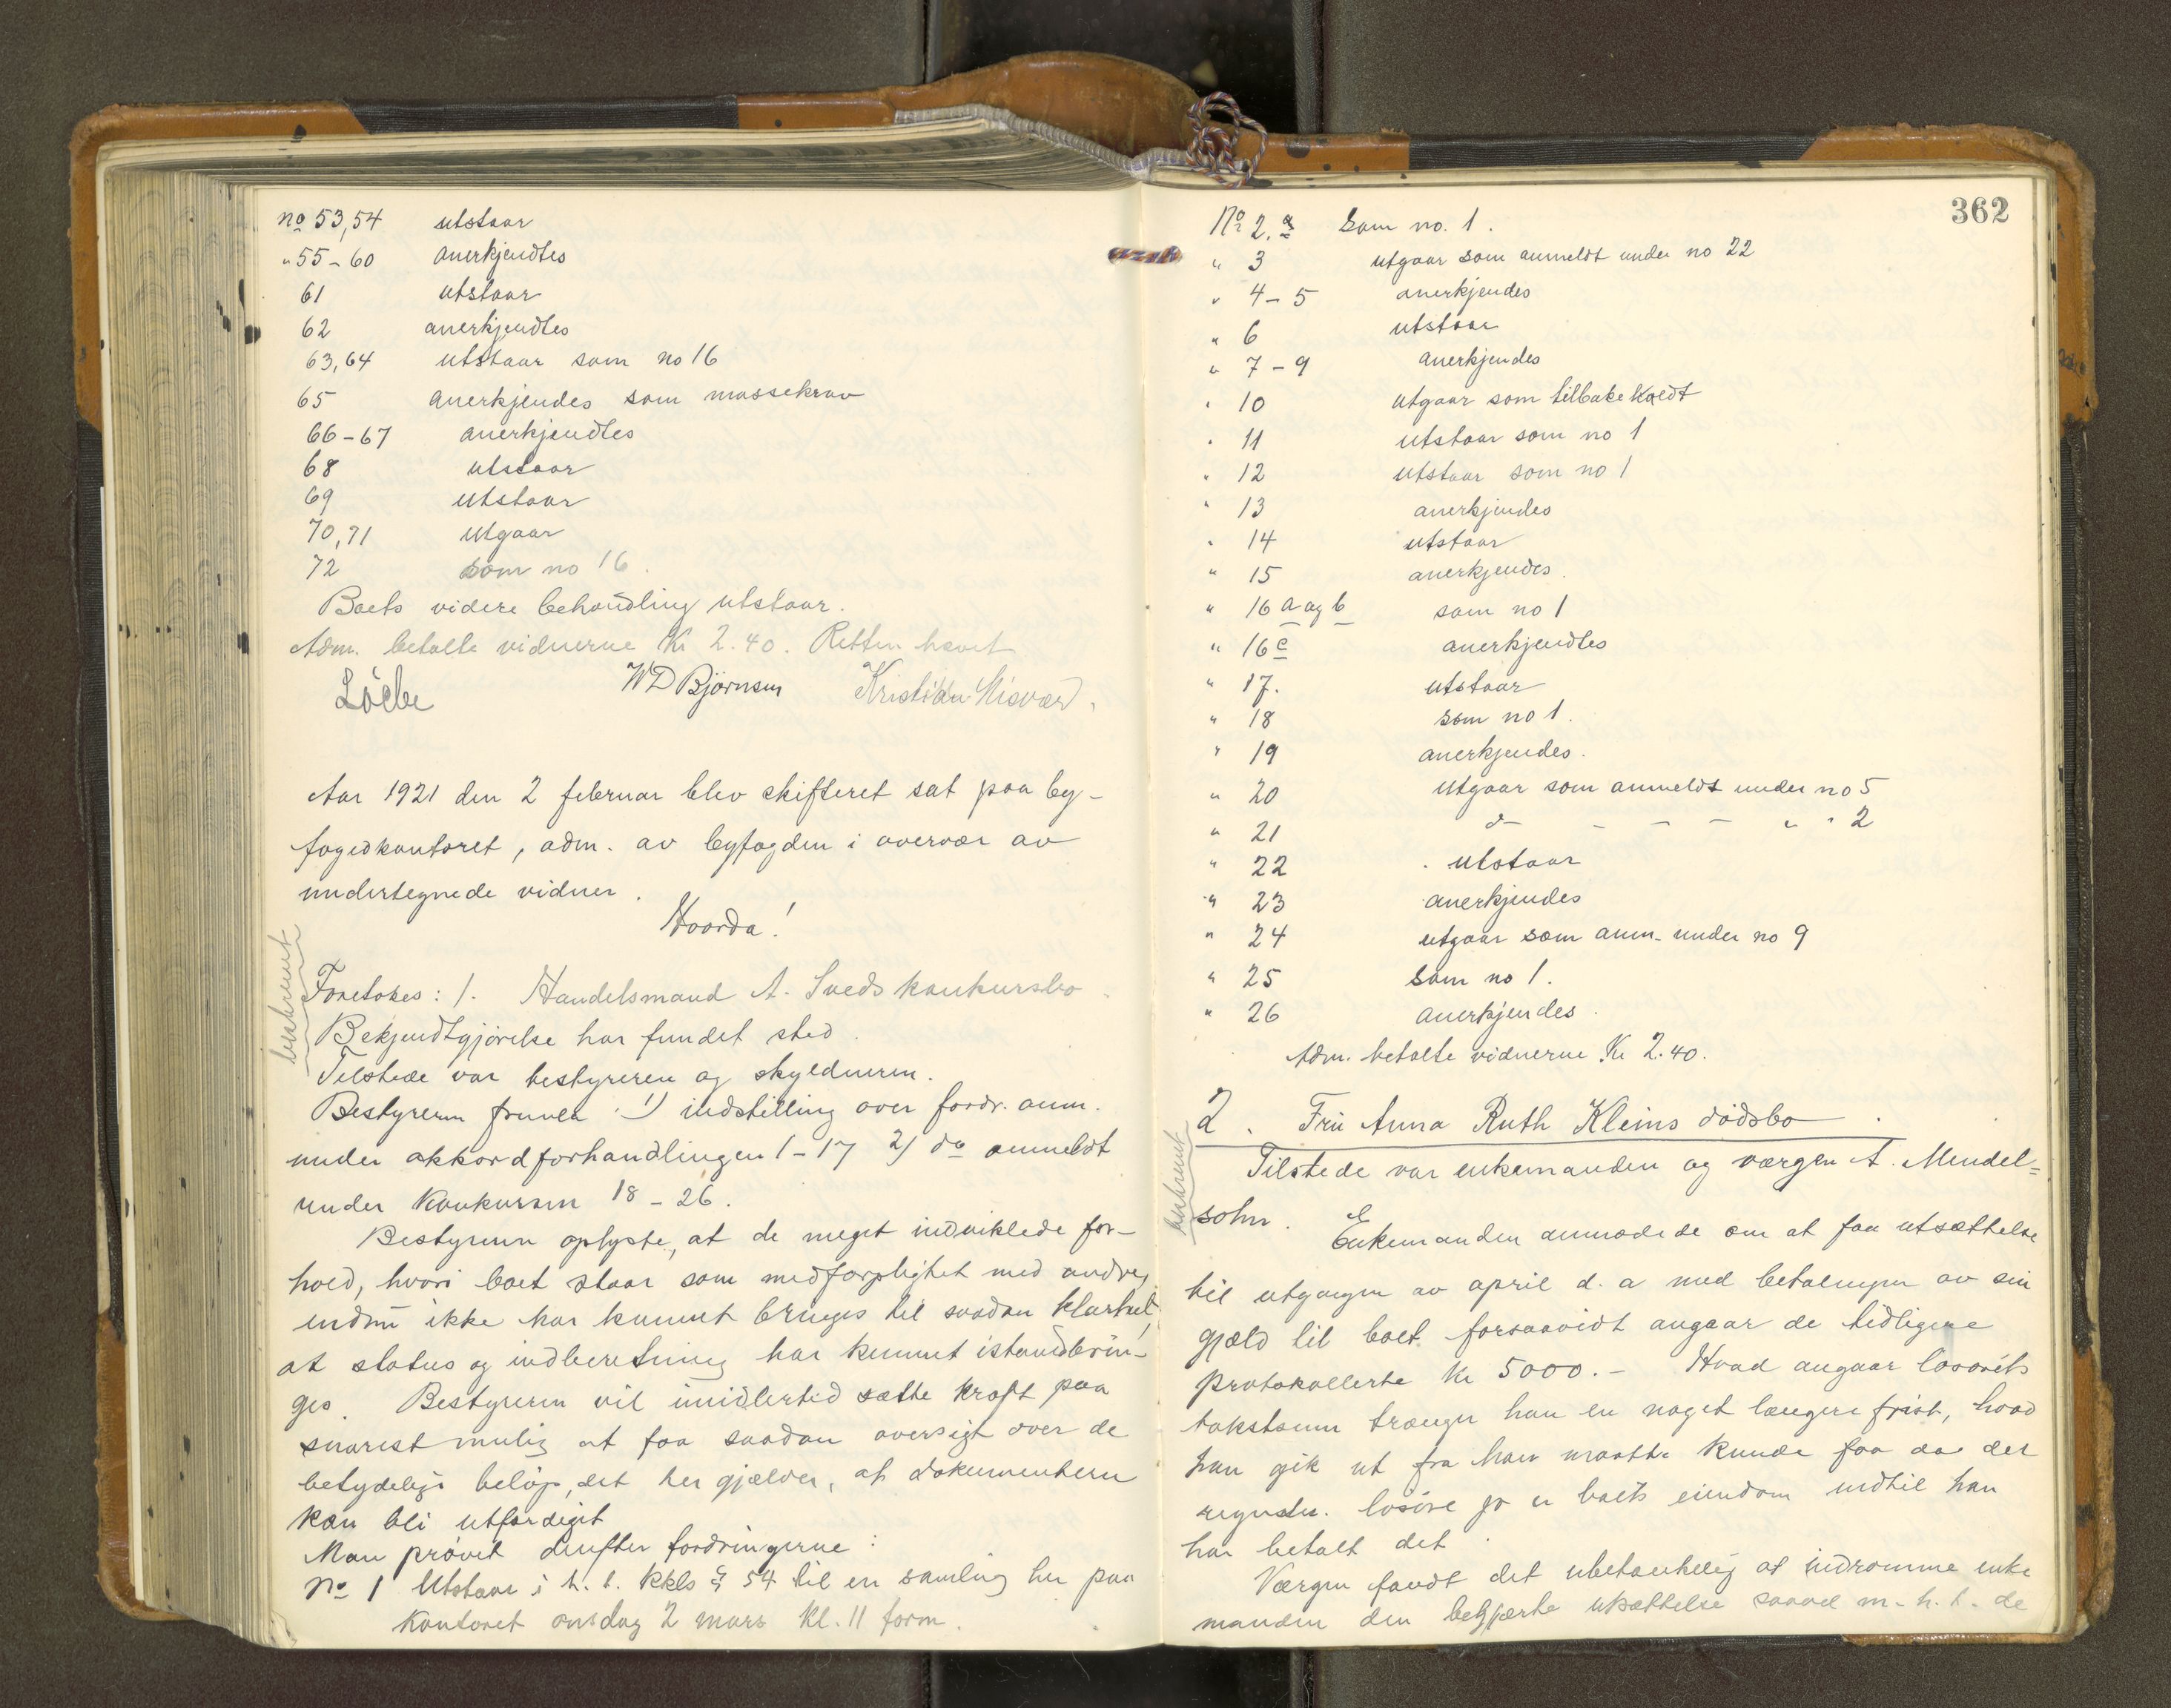 No 53,54 utstaar
" 55-60 anerkjendtes
61 utstaar
62 anerkjendtes
63,64 utstaar som no 16
65 anerkjendes som massekrav
66-67 anerkjendtes
68 utstaar
69 utstaar
70,71 utgaar
72 som no 16.
Boets videre behandling utstaar.
Adm. betalte vidnerne Kr 2.40. Retten hævet
WD Bjørnsen Kristian
Aar 1921 den 2 februar blev skifteret sat paa by-
fogedkontoret, adm. av byfogden i overvær av
undertegnede vidner.
Hvorda!
Foretokes: 1. Handelsmand A. Sveds konkursbo
Bekjendtgjørelse har fundet sted.
Tilstede var bestyreren og skyldneren.
Bestyreren fremla 1) indstilling over fordr. anm.
under akkordforhandlingen 1-17 2) do anmeldt
under Konkursen 18-26.
Bestyreren oplyste, at de meget indviklede for-
hold, hvori boet staar som medforpligtet med andre,
endnu ikke har kunnet bringes til saadan klarhet,
at status og indberetning har kunnet istandbrin-
ges. Bestyreren vil imidlertid sætte kraft paa
snarest mulig at faa saadan oversigt over de
betydelige beløp, det her gjælder, at dokumentern
kan bli utfærdiget
Man prøvet derefter fordringerne:
No 1 Utstaar i h. t. kkls § 54 til en samling her paa
Kontoret onsdag 2 mars kl. 11 form.
362
No 2. a som no. 1.
" 3 utgaar som anmeldt under no 22
" 4-5 anerkjendes
" 6 utstaar
" 7-9 anerkjendes
" 10 utgaar som tilbakekaldt
" 11 utstaar som no 1
" 12 utstaar som no 1
" 13 anerkjendes
" 14 utstaar
" 15 anerkjendes.
" 16 a og b som no 1
" 16 c anerkjendtes
" 17. utstaar
" 18 som no 1.
" 19 anerkjendes.
" 20 Utgaar som anmeldt under no 5
" 21 do - - - - " " 2
" 22 utstaar
" 23 anerkjendes
" 24 utgaar som anm. under no 9
" 25 som no 1.
" 26 anerkjendes.
Adm. betalte vidnerne Kr 2.40.
2. Fru Anna Ruth Kleins dödsbo.
Tilstede var enkemanden og værgen A. Mendel=
sohn. Enkemanden anmodede om at faa utsættelse
til utgangen av april d. a med betalingen av sin
gjæld til boet forsaavidt angaar de tidligere
protokollerte Kr 5000.- Hvad angaar løsörets
takstsum trænger han en noget længere frist, hvad
han gik ut fra han maatte kunde faa da det
løsöre jo er boets eiendom indtil han
har betalt det.
Værgen fandt det ubetænkelig at indrømme enke
manden den begjærte utsættelse saavel m. h. t. de